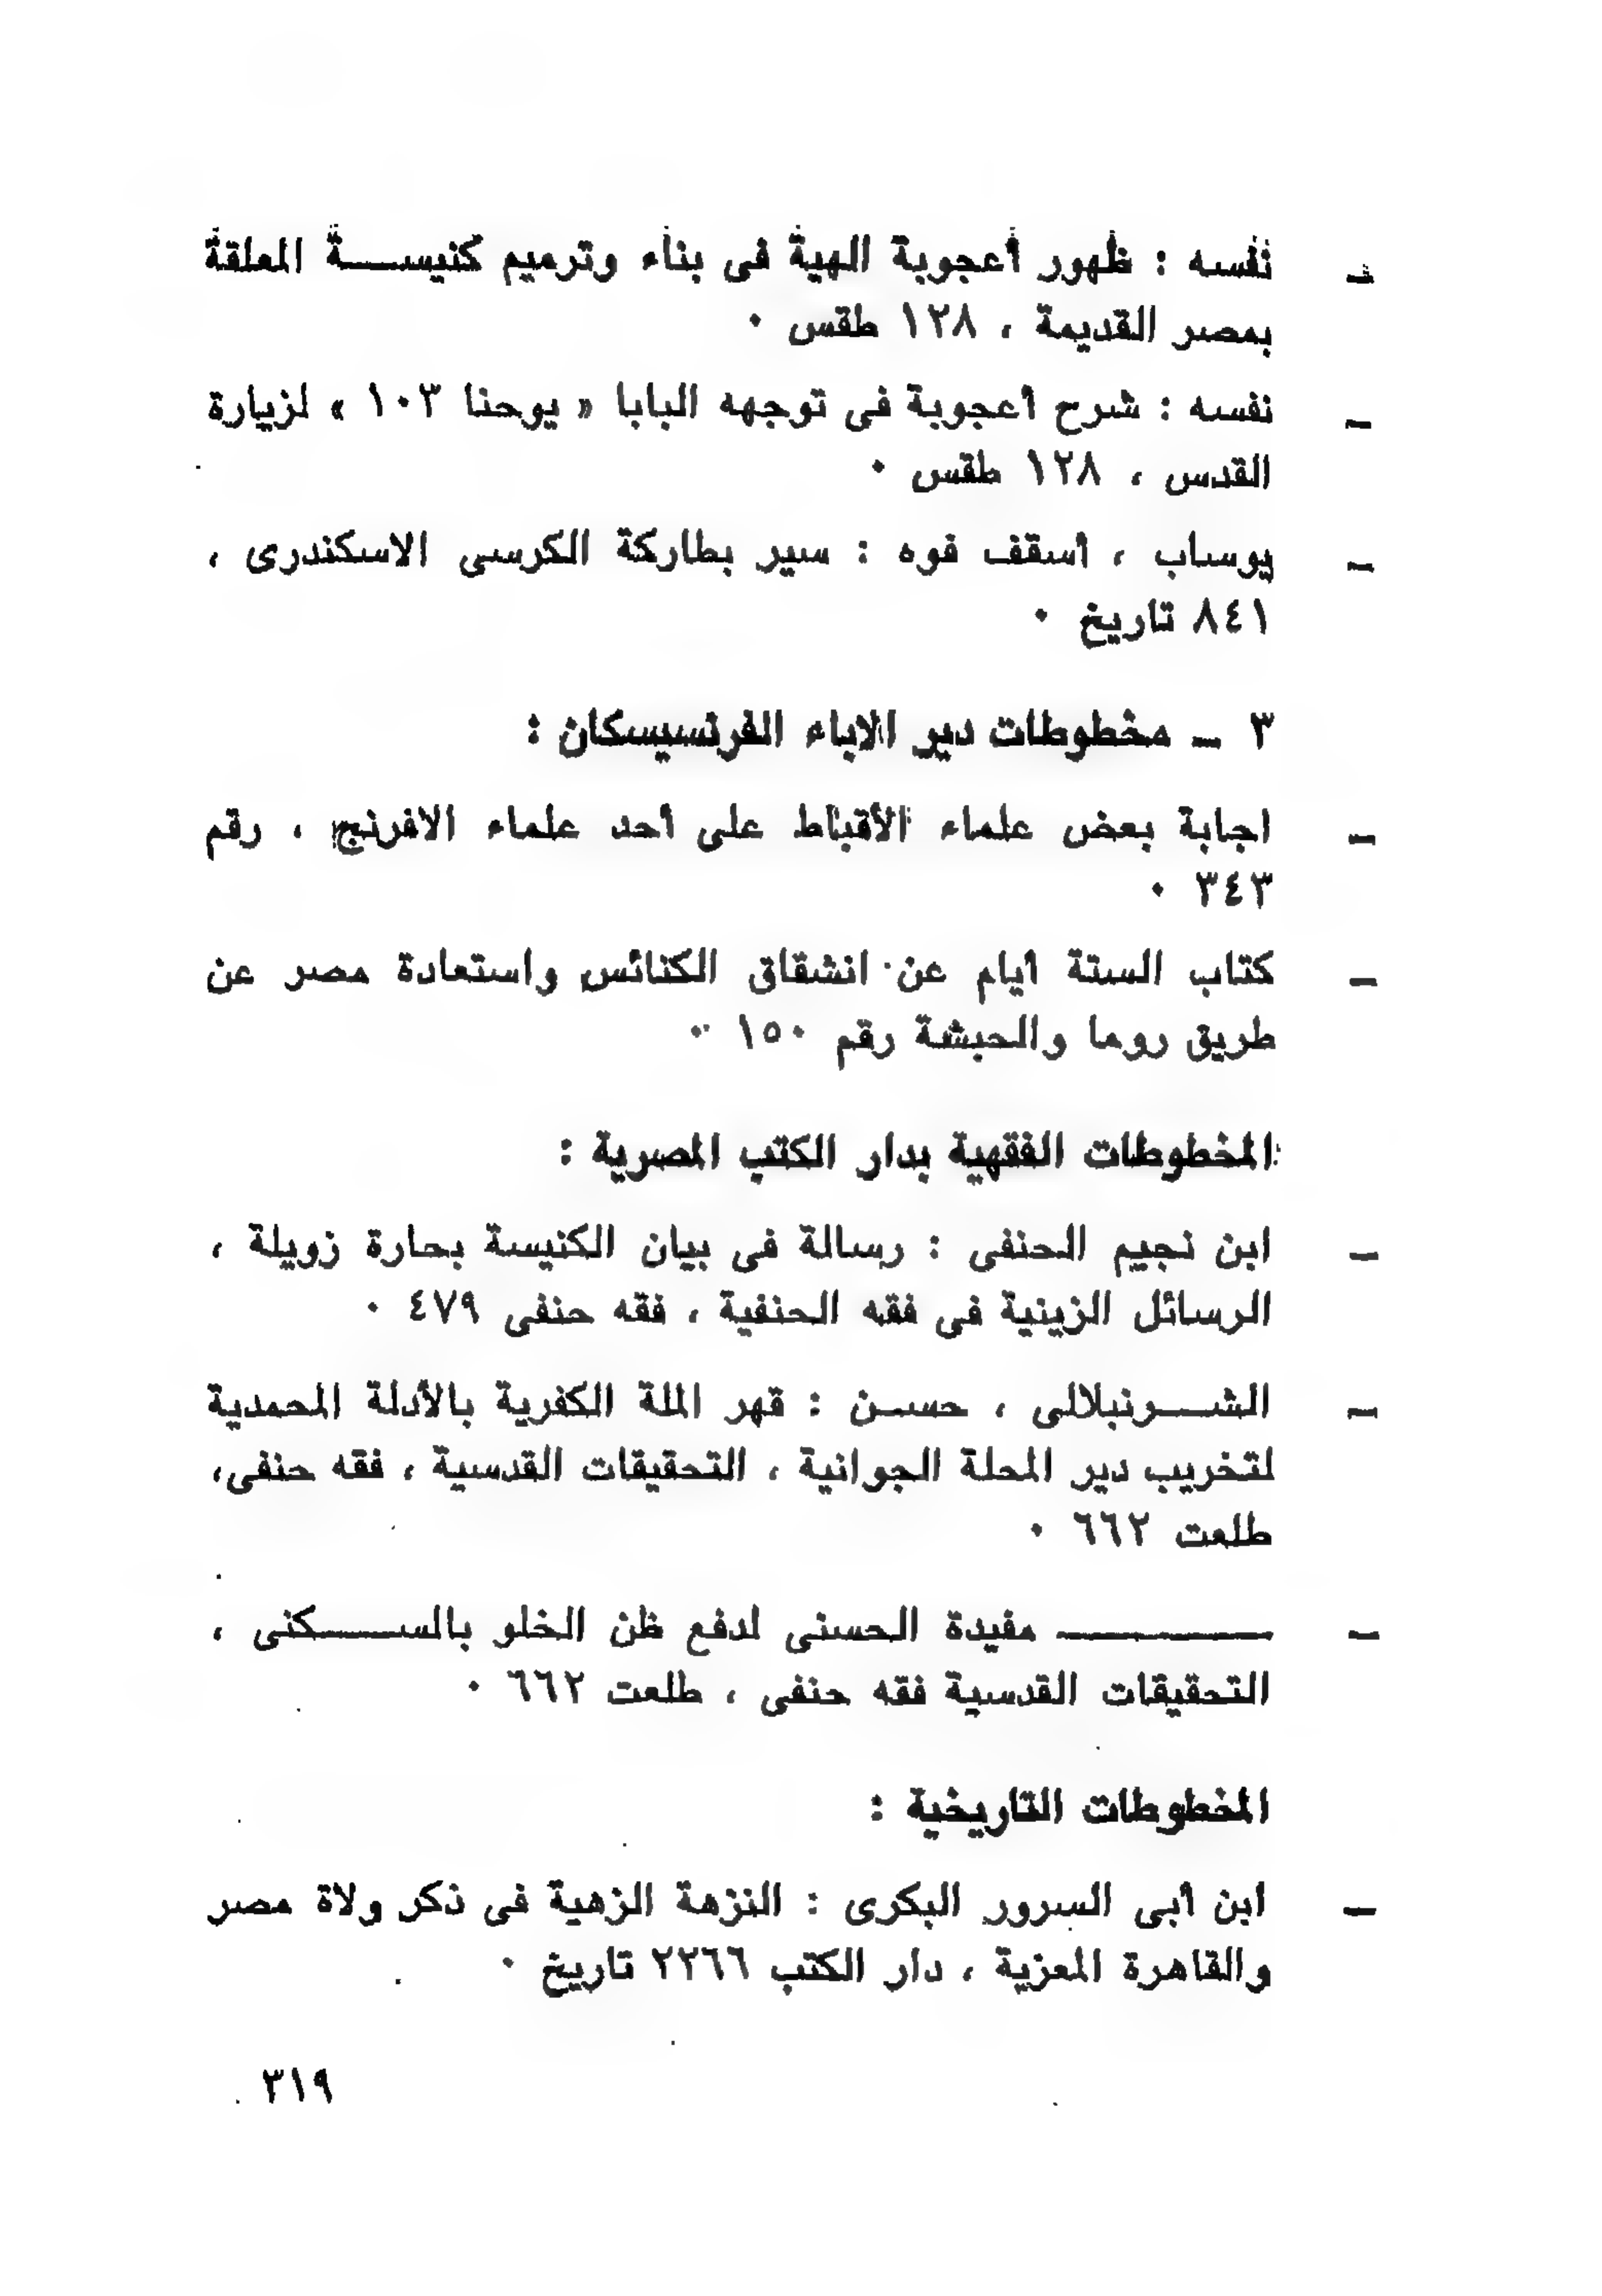 ـ نفسه : ظهور أعجوبة الهية فى بناء وترميم كنيســـة المعلقة
بمصر القديمة ، ١٢٨ طقس ٠
ـ نفسه : شرح أعجوبة فى توجهه البابا « يوحنا ١٠٣ » لزيارة
القدس ، ١٢٨ طقس ٠
ـ يوساب ، أسقف فوه : سير بطاركة الكرسى الاسكندرى ،
٨٤١ تاريخ ٠
٣ ـ مخطوطات دير الاباء الفرنسيسكان :
ـ اجابة بعض علماء الأقباط على أحد علماء الافرنج ، رقم
٣٤٣ ٠
ـ كتاب الستة أيام عن انشقاق الكنائس واستعادة مصر عن
طريق روما والحبشة رقم ١٥٠ ٠
المخطوطات الفقهية بدار الكتب المصرية :
ـ ابن نجيم الحنفى : رسالة فى بيان الكنيسة بحارة زويلة ،
الرسائل الزينية فى فقه الحنفية ، فقه حنفى ٤٧٩ ٠
ـ الشـــرنبلالى ، حســن : قهر الملة الكفرية بالأدلة المحمدية
لتخريب دير المحلة الجوانية ، التحقيقات القدسية ، فقه حنفى،
طلعت ٦٦٢ ٠
ـ ــــــــــــ مفيدة الحسنى لدفع ظن الخلو بالســــكنى ،
التحقيقات القدسية فقه حنفى ، طلعت ٦٦٢ ٠
المخطوطات التاريخية :
ـ ابن أبى السرور البكرى : النزهة الزهية فى ذكر ولاة مصر
والقاهرة المعزية ، دار الكتب ٢٢٦٦ تاريخ ٠
٣١٩